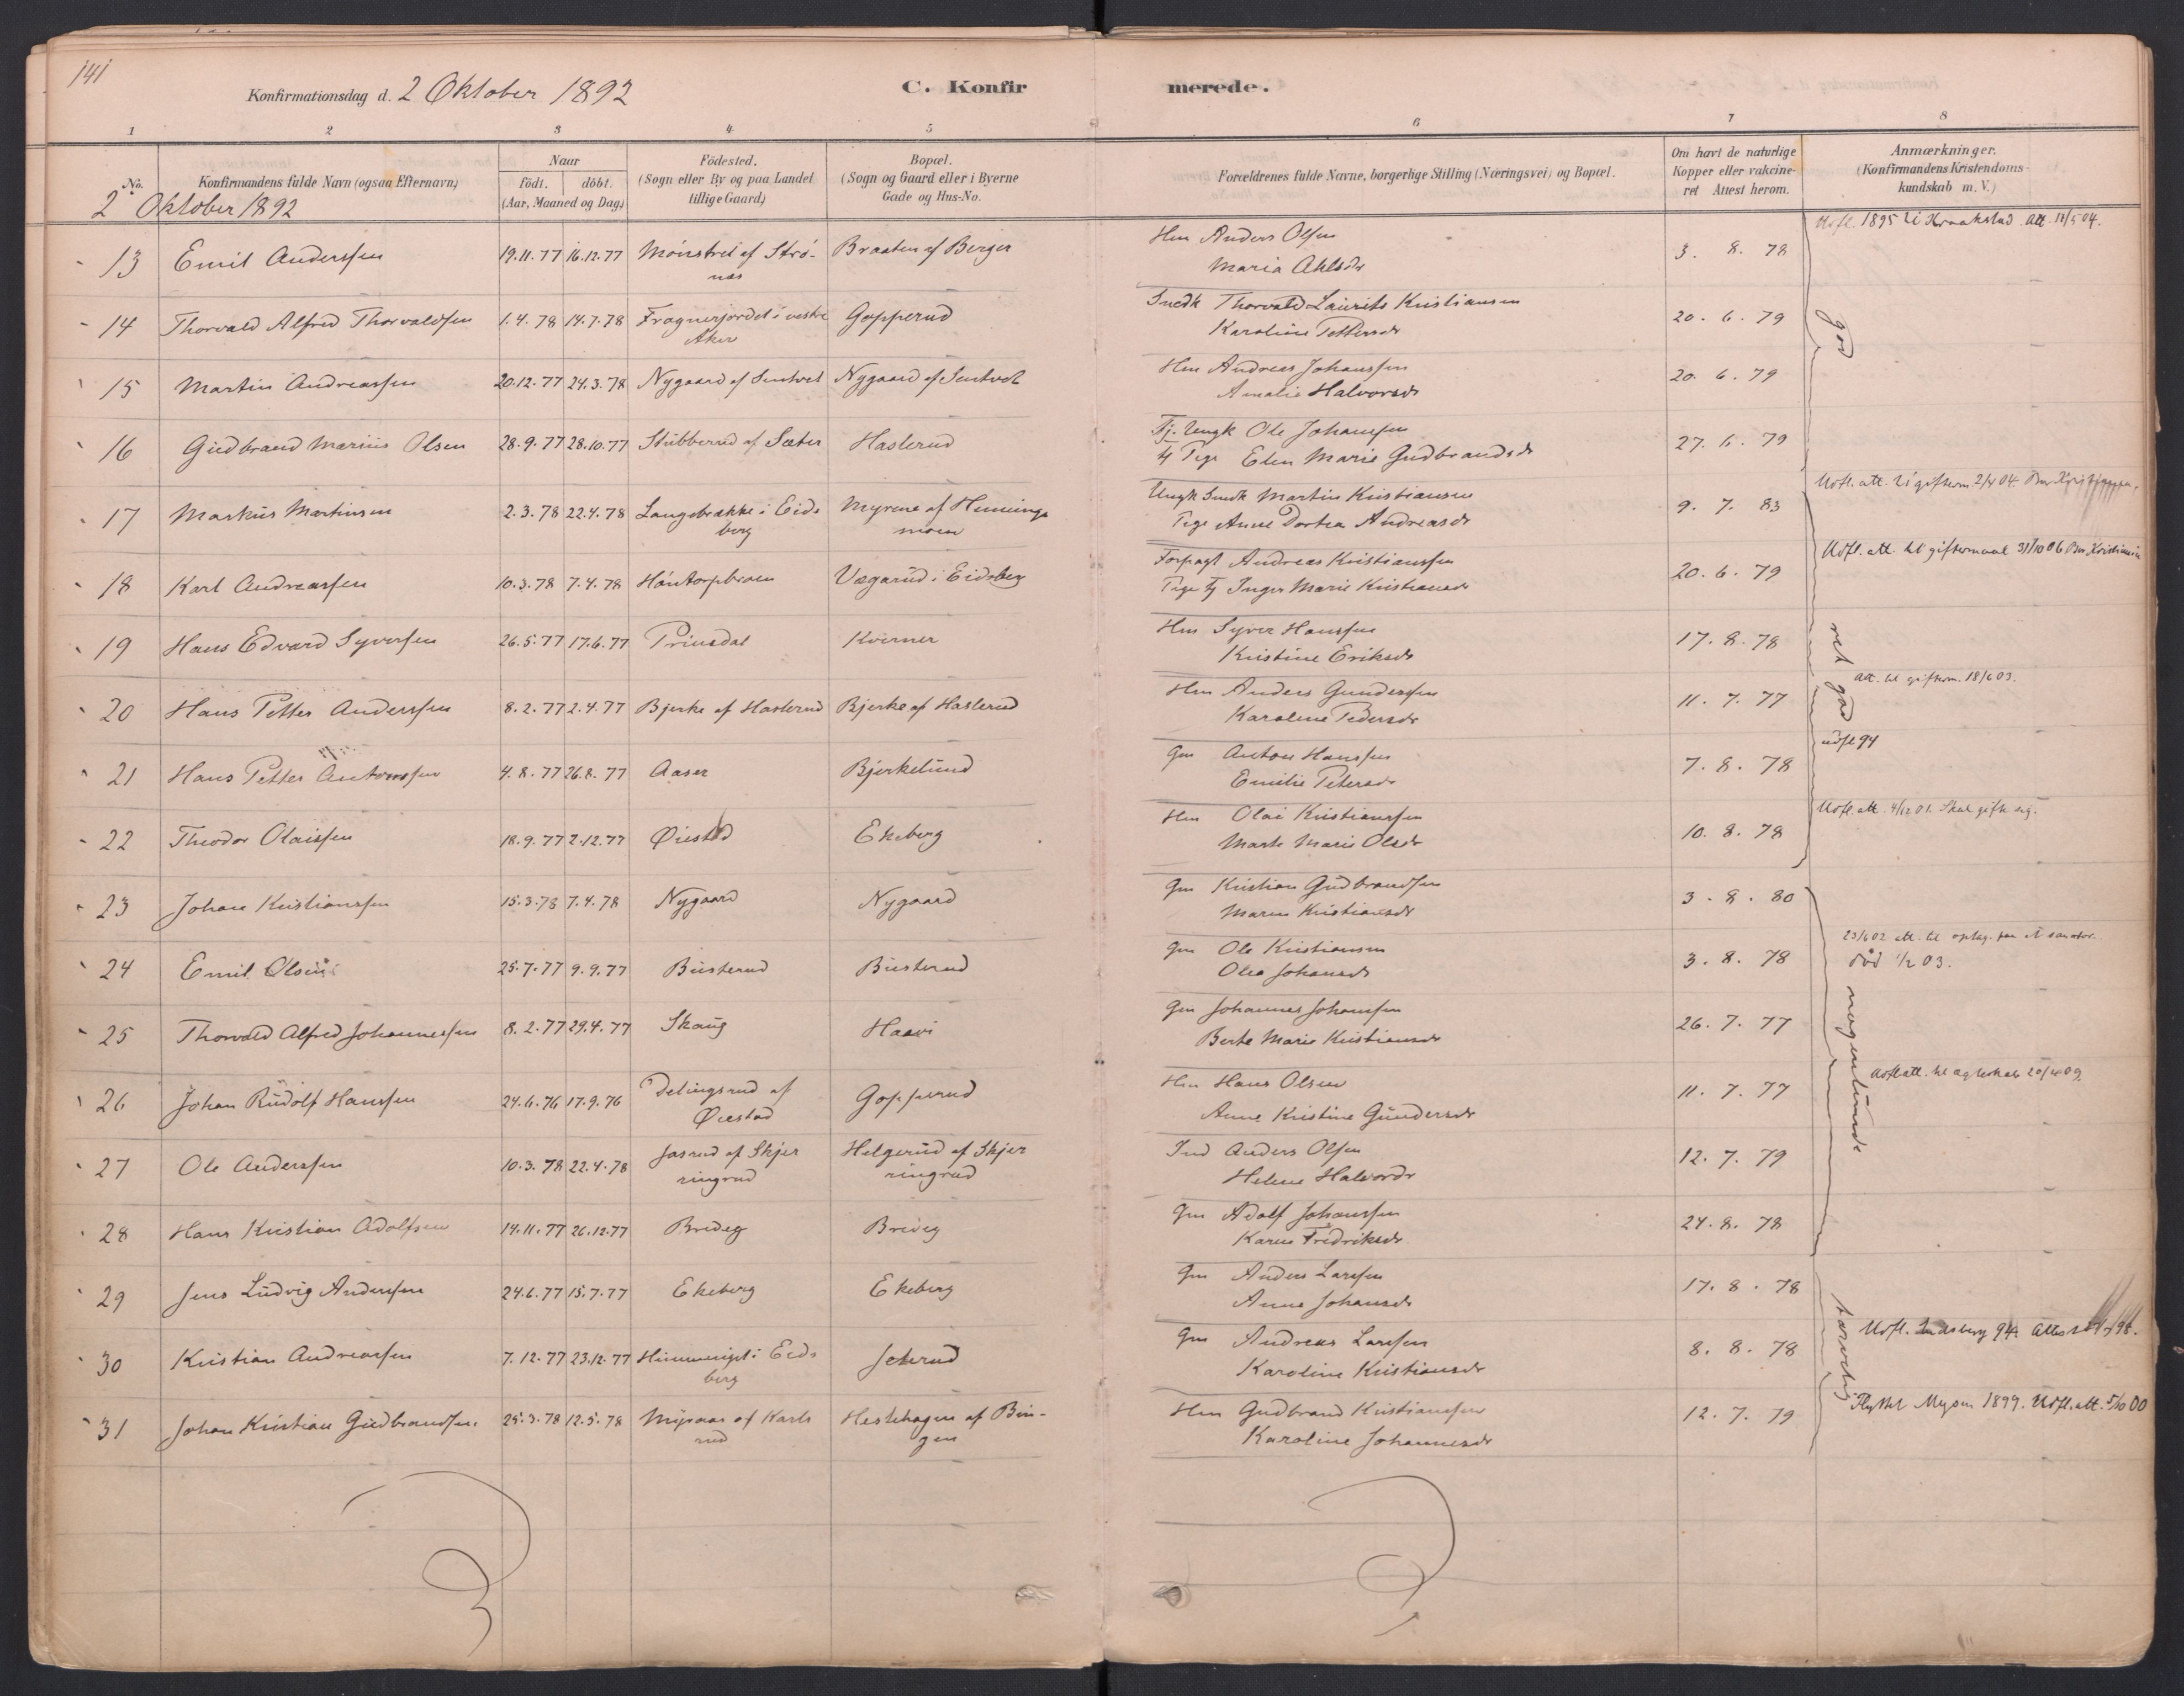 141
Konfirmationsdag d. 2 Oktober 1892
C. Konfirmerede.
1 2 3 4 5 6 7 8
No.
Konfirmandens fulde Navn (ogsaa Efternavn)
Naar
födt. döbt.
(Aar, Maaned og Dag)
Födested.
(Sogn eller By og paa Landet
tillige Gaard)
Bopæl.
(Sogn og Gaard eller i Byerne
Gade og Hus-No.
Forældrenes fulde Navne, borgerlige Stilling (Næringsvei) og Bopæl.
Om havt de naturlige
Kopper eller vakcine-
ret Attest herom.
Anmærkninger.
(Konfirmandens Kristendoms-
kundskab m. V.)
2 Oktober 1892
13 Emil Anderssen 19.11.77 16.12.77 Mönstret af Strö-
næs Braaten af Berger Hm Anders Olsen
Maria Ahlsdr 3. 8. 78 Udfl. 1895 til Kraakstad att. 11/5 04.
14 Thorvald Alfred Thorvaldsen 1.4.78 14.7.78 Frognerjordet i vestre
Aker Gopperud Snedk Thorvald Laurits Kristiansen
Karoline Pettersdr 20. 6. 79 god
15 Martin Andreassen 20.12.77 24.3.78 Nygaard af Sentvet Nygaard af Sentvet Hm Andreas Johanssen
Amalie Halvorsdr 20. 6. 79
16 Gudbrand Marius Olsen 28.9.77 28.10.77 Stubberud af Sæter Haslerud Tj. Ungk Ole Johansen
Tj Pige Elen Marie Gudbrandsdr 27. 6. 79
17 Markus Martinsen 2.3.78 22.4.78 Langebrække i Eids
berg Myrene af Hennings
moen Ungk Smedk Martin Kristiansen
Pige Anne Dortea Andreasdr 9. 7. 83 Udfl. att. til gifterm 2/4 04.
18 Karl Andreassen 10.3.78 7.4.78 Höntorpbroen Vegarud i Eidsberg Forpagt Andreas Kristianssen
Pige Tj Inger Marie Kristiansdr 20. 6. 79 Udfl. att. til giftermaal 31/10 06 Kristiania
19 Hans Edvard Syversen 26.5.77 17.6.77 Prinsdal Kverner Hm Syver Hanssen
Kristine Eriksdr 17. 8. 78 ret god
20 Hans Petter Anderssen 8.2.77 2.4.77 Bjerke af Haslerud Bjerke af Haslerud Hm Anders Gundersen
Karoline Pedersdr 11. 7. 77 att. til gifterm. 18/6 03.
21 Hans Petter Antonsen 4.8.77 26.8.77 Aaser Bjerkelund Gm Anton Hanssen
Emilie Petersdr 7. 8. 78 udfl 94
22 Theodor Olaissen 18.9.77 2.12.77 Öiestad Ekeberg Hm Olai Kristianssen
Marte Marie Olsdr 10. 8. 78 Udfl. att. 4/12 01. Skal gifte sig.
23 Johan Kristianssen 15.3.78 7.4.78 Nygaard Nygaard Gm Kristian Gudbrandsen
Maren Kristiansdr 3. 8. 80
24 Emil Olsen 25.7.77 9.9.77 Busterud Busterud Gm Ole Kristiansen
Olea Johansdr 3. 8. 78 23/6 02 att. til optag. paa et sanator.
död 1/2 03.
25 Thorvald Alfred Johannessen 8.2.77 29.4.77 Skaug Haavi Gm Johannes Johansen
Berte Marie Kristiansdr 26. 7. 77 nogenlunde
26 Johan Rudolf Hanssen 24.6.76 17.9.76 Delingsrud af
Öiestad Gopperud Hm Hans Olsen
Anne Kristine Gundersdr 11. 7. 77
27 Ole Anderssen 10.3.78 22.4.78 Jasrud af Skjer
ringrud Helgerud af Skjer
ringrud Ind Anders Olsen
Helene Halvorsdr 12. 7. 79
28 Hans Kristian Adolfsen 14.11.77 26.12.77 Brideg Brideg Gm Adolf Johanssen
Karen Fredriksdr 24. 8. 78
29 Jens Ludvig Anderssen 24.6.77 15.7.77 Ekeberg Ekeberg Gm Anders Larssen
Anne Johansdr 17. 8. 78 tarvelig
30 Kristian Andreassen 7.12.77 23.12.77 Himmerigt i Eids
berg Jeterud Gm Andreas Larssen
Karoline Kristiansdr 8. 8. 78 Udfl. 94
31 Johan Kristian Gudbrandsen 25.3.78 12.5.78 Mysaas af Karls
rud Hestehagen af Bin-
gen Hm Gudbrand Kristianssen
Karoline Johannesdr 12. 7. 79 Flyttet Mysen 1899. Udfl. att. 5/10 00